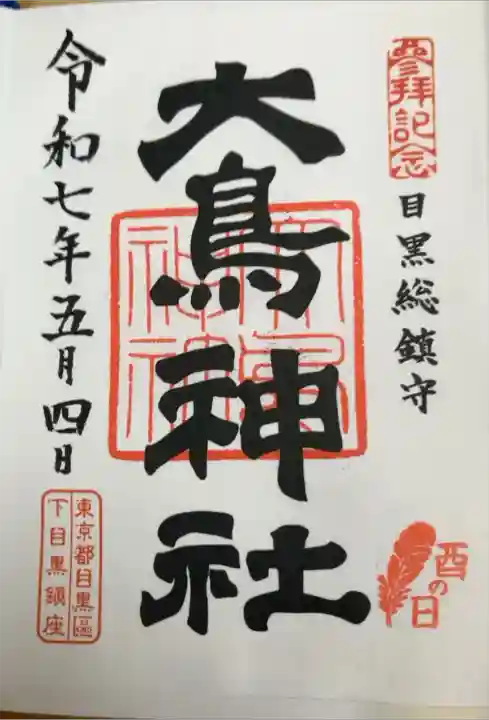 參拝記念
目黒総鎮守
酉の日
大鳥神社
大鳥神社
令和七年五月四日
東京都目黒區
下目黒鎮座